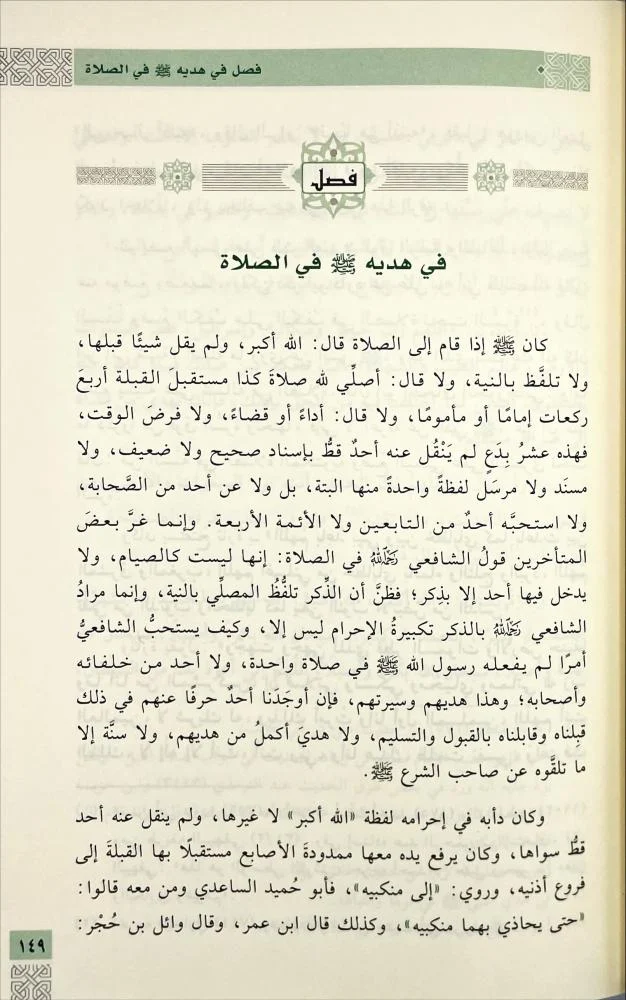 فصل في هديه ﷺ في الصلاة
فصل
في هديه ﷺ في الصلاة
كان ﷺ إذا قام إلى الصلاة قال: الله أكبر، ولم يقل شيئًا قبلها،
ولا تلفَّظ بالنية، ولا قال: أصلِّي لله صلاةَ كذا مستقبلَ القبلة أربعَ
ركعات إمامًا أو مأمومًا، ولا قال: أداءً أو قضاءً، ولا فرضَ الوقت،
فهذه عشرُ بِدَعٍ لم يَنْقُل عنه أحدٌ قطُّ بإسناد صحيح ولا ضعيف، ولا
مسنَد ولا مرسَل لفظةً واحدةً منها البتة، بل ولا عن أحد من الصَّحابة،
ولا استحبَّه أحدٌ من التابعين ولا الأئمة الأربعة. وإنما غرَّ بعضَ
المتأخرين قولُ الشافعي رَحِمَهُ اللَّهُ في الصلاة: إنها ليست كالصيام، ولا
يدخل فيها أحد إلا بذِكر؛ فظنَّ أن الذِّكر تلفُّظُ المصلِّي بالنية، وإنما مرادُ
الشافعي رَحِمَهُ اللَّهُ بالذكر تكبيرةُ الإحرام ليس إلا، وكيف يستحبُّ الشافعيُّ
أمرًا لم يفعله رسول الله ﷺ في صلاة واحدة، ولا أحد من خلفائه
وأصحابه؛ وهذا هديهم وسيرتهم، فإن أوجَدَنا أحدٌ حرفًا عنهم في ذلك
قبِلناه وقابلناه بالقبول والتسليم، ولا هديَ أكملُ من هديهم، ولا سنَّة إلا
ما تلقَّوه عن صاحب الشرع ﷺ.
وكان دأبه في إحرامه لفظة «الله أكبر» لا غيرها، ولم ينقل عنه أحد
قطُّ سواها، وكان يرفع يده معها ممدودةَ الأصابع مستقبلًا بها القبلةَ إلى
فروع أذنيه، وروي: «إلى منكبيه»، فأبو حُميد الساعدي ومن معه قالوا:
«حتى يحاذي بهما منكبيه»، وكذلك قال ابن عمر، وقال وائل بن حُجْر:
١٤٩